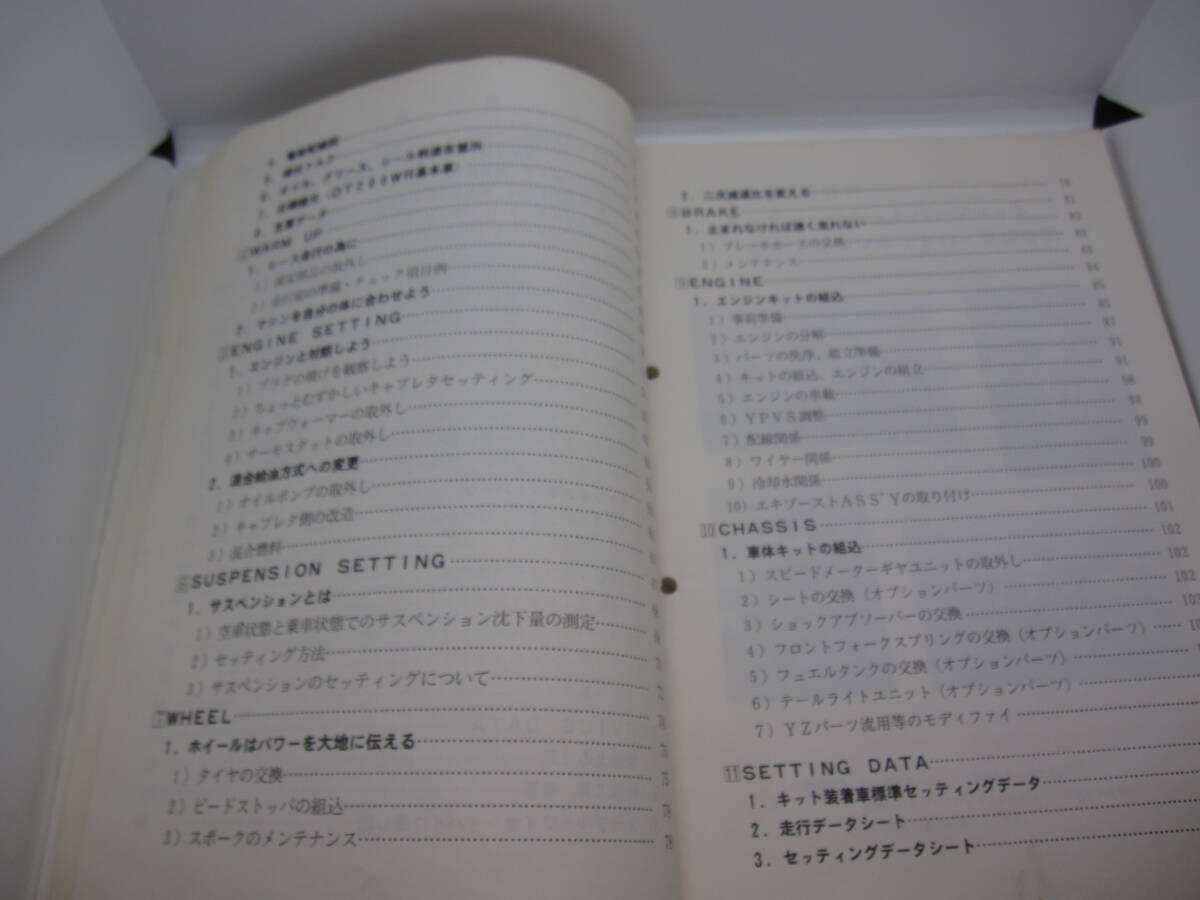 5．締付トルク
6．オイル、グリース、シール剤塗布箇所
7．仕様諸元（DT200WR基本車）
8．主要データ
WARM UP
1．レース走行の為に
1）保安部品の取外し
2）走行前の準備・チェック項目例
2．マシンを自分の体に合わせよう
ENGINE SETTING
1．エンジンと対話しよう
1）プラグの焼けを観察しよう
2）ちょっとむずかしいキャブレタセッティング
3）キャブウォーマーの取外し
4）サーモスタットの取外し
2．混合給油方式への変更
1）オイルポンプの取外し
2）キャブレタ側の改造
3）混合燃料
6 SUSPENSION SETTING
1．サスペンションとは
1）空車状態と乗車状態でのサスペンション沈下量の測定
2）セッティング方法
3）サスペンションのセッティングについて 72
7 WHEEL 74
1．ホイールはパワーを大地に伝える 75
1）タイヤの交換 75
2）ビードストッパの組込 78
3）スポークのメンテナンス 78
2．二次減速比を変える
8 BRAKE 81
1．止まれなければ速く走れない 82
1）ブレーキホースの交換 82
2）メンテナンス 83
9 ENGINE 84
1．エンジンキットの組込 85
1）事前準備 85
2）エンジンの分解 87
3）パーツの洗浄、組立準備 91
4）キットの組込、エンジンの組立 91
5）エンジンの車載 98
6）YPVS調整 98
7）配線関係 99
8）ワイヤー関係 99
9）冷却水関係 100
10）エキゾーストASS'Yの取り付け 100
10 CHASSIS 101
1．車体キットの組込 102
1）スピードメーターギヤユニットの取外し 102
2）シートの交換（オプションパーツ） 102
3）ショックアブソーバーの交換
4）フロントフォークスプリングの交換（オプションパーツ）
5）フュエルタンクの交換（オプションパーツ）
6）テールライトユニット（オプションパーツ）
7）YZパーツ流用等のモディファイ
11 SETTING DATA
1．キット装着車標準セッティングデータ
2．走行データシート
3．セッティングデータシート